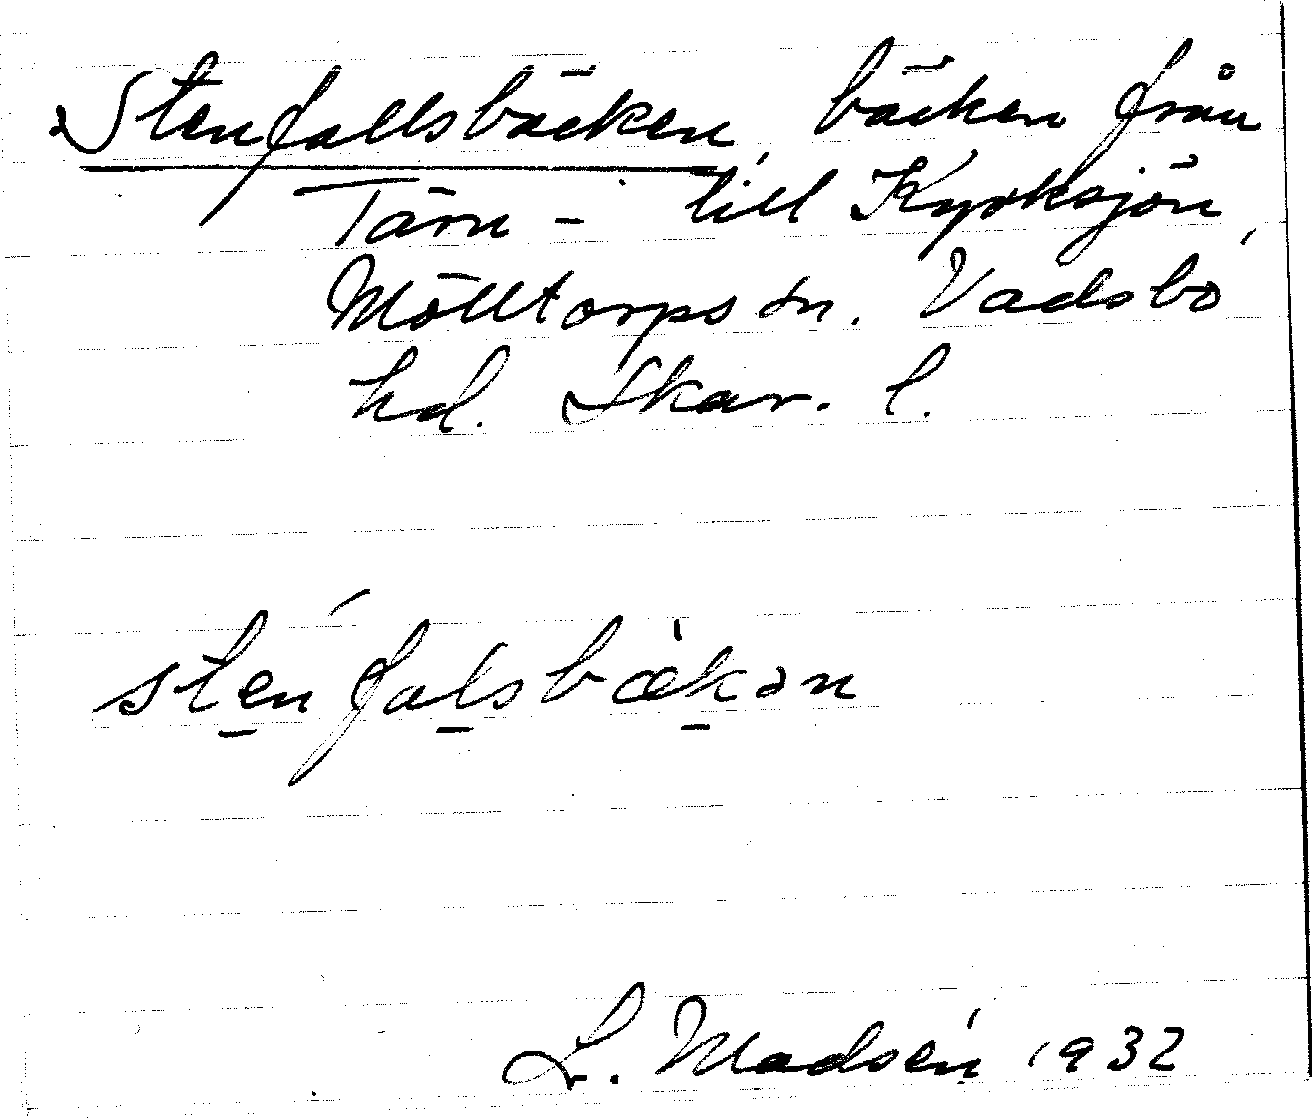 Stenfallsbäcken, bäcken från
Tärn- till Kyrksjön,
Mölltorps sn. Vadsbo
hd. Skar. l.
stenfalsbækən
L. Madsén 1932